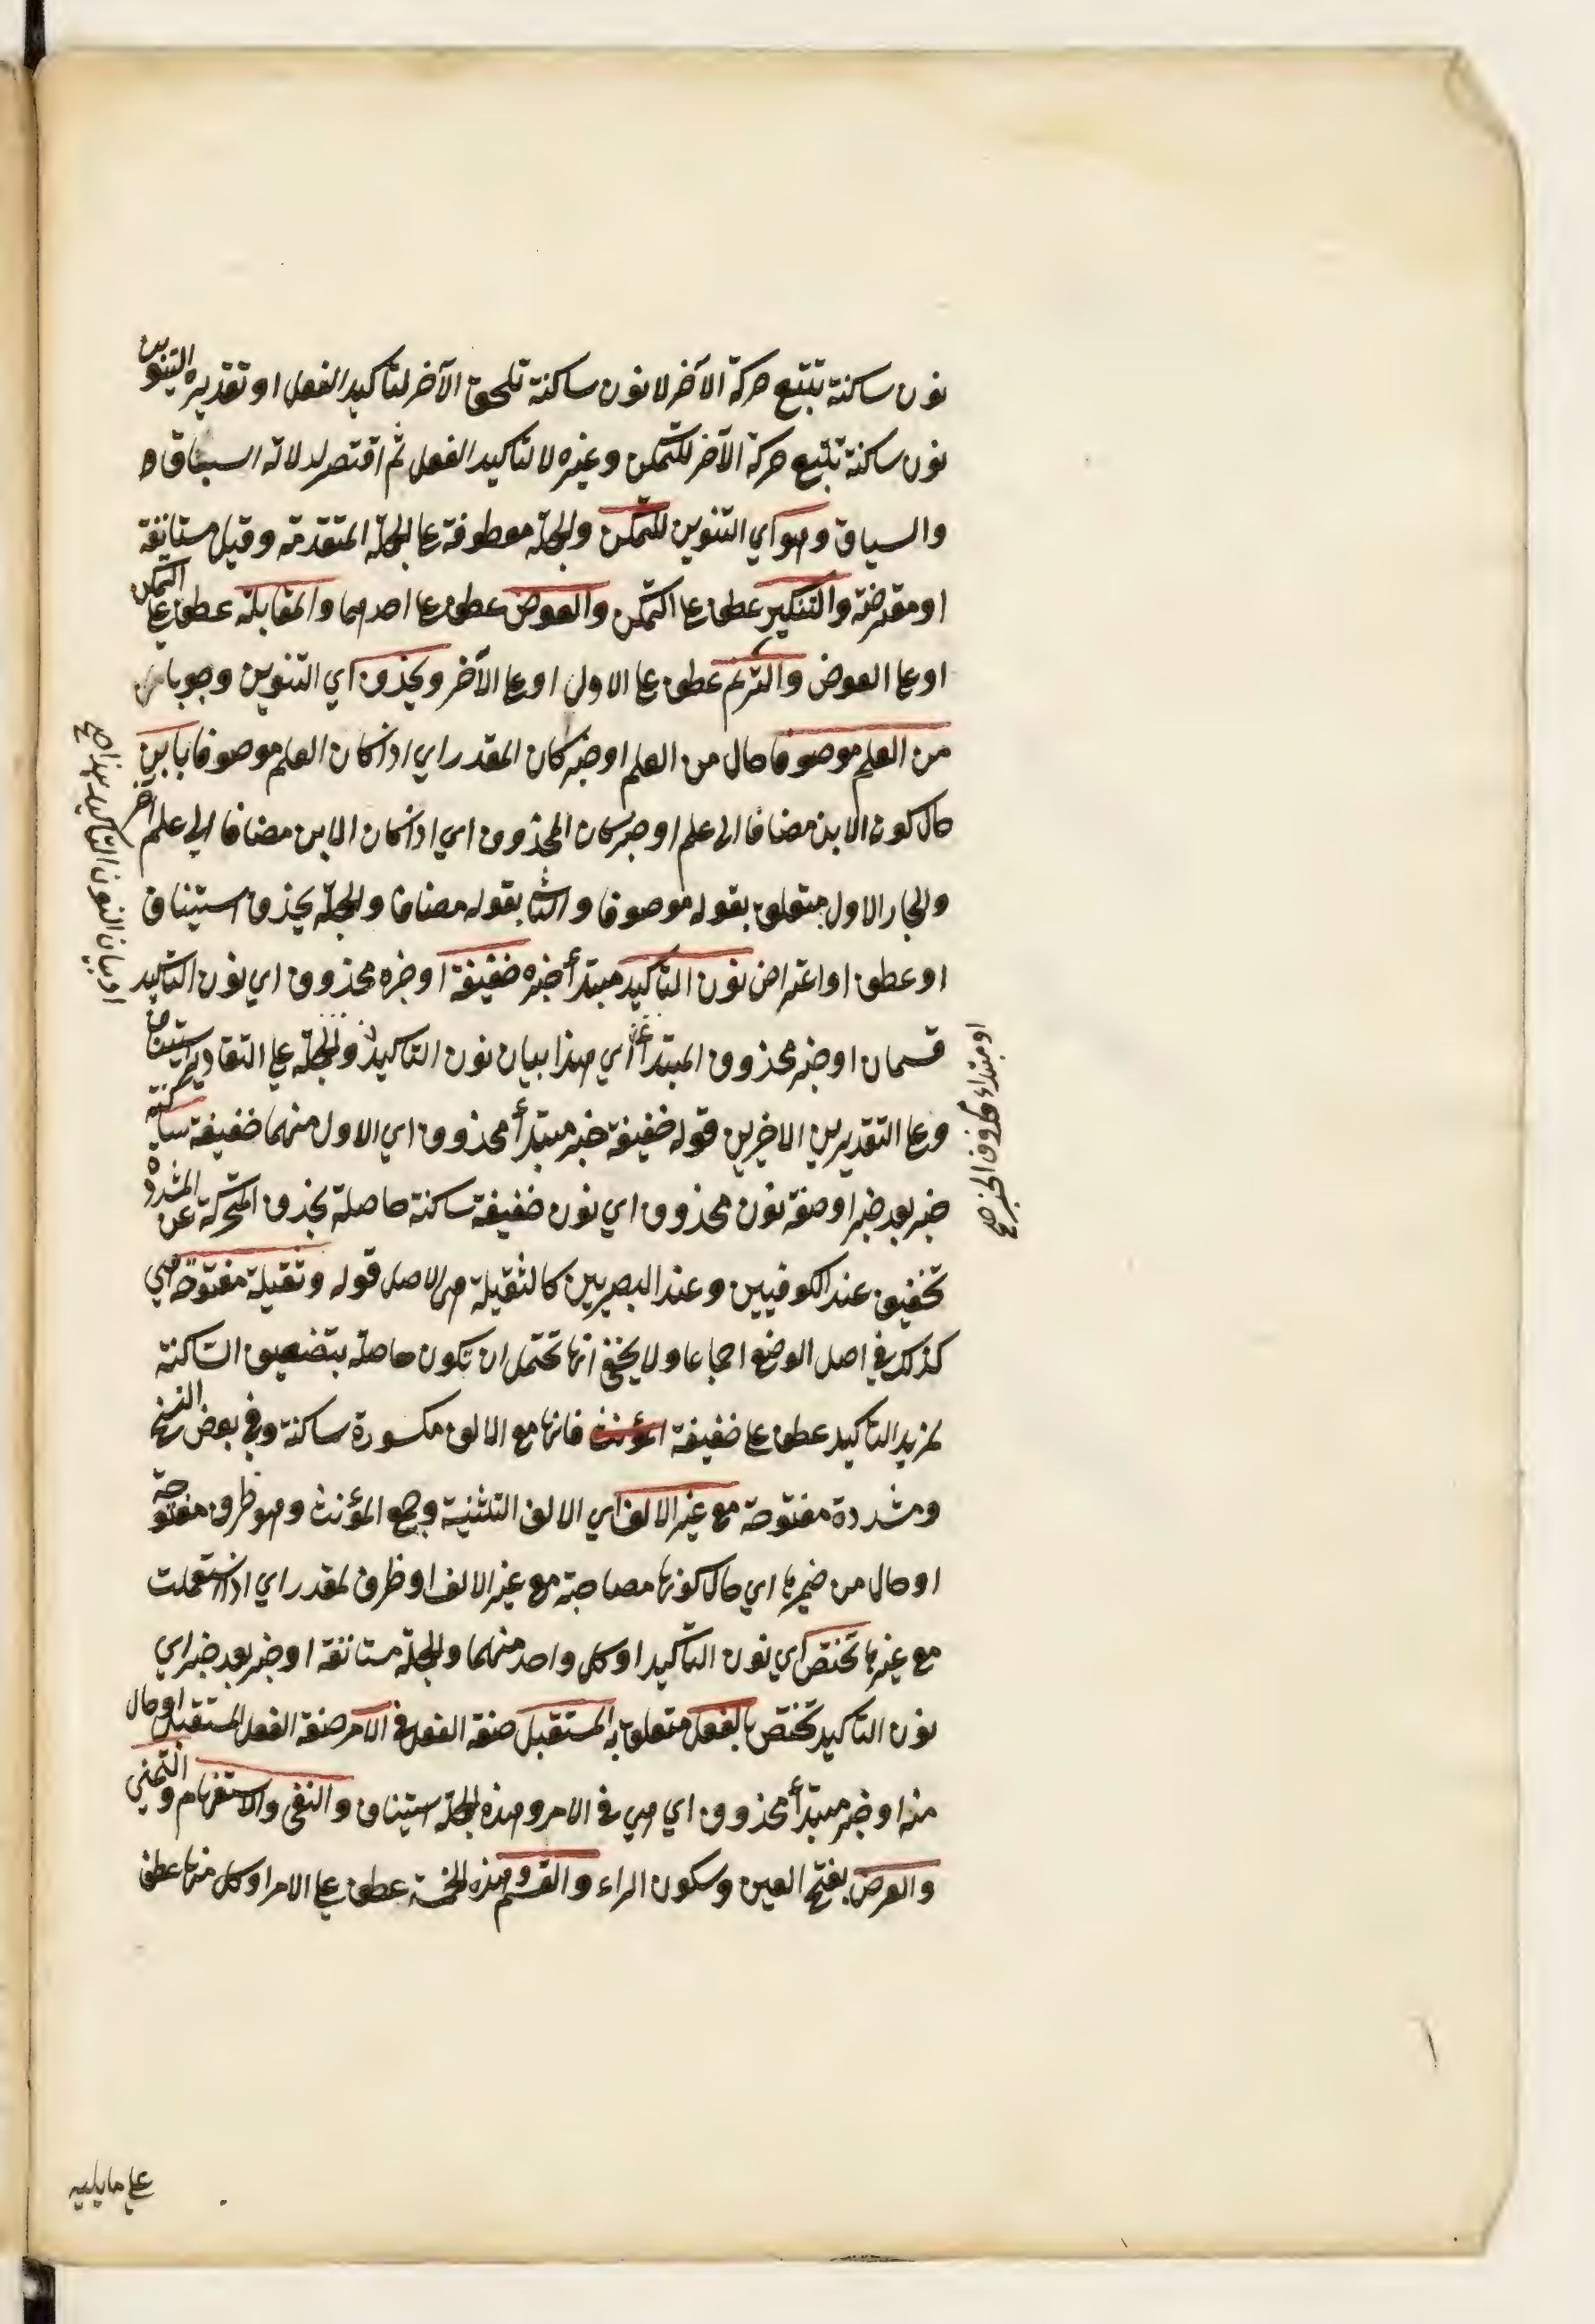 نون ساكنة تتبع حركة الآخر لا نون ساكنة تلحق الآخر لتأكيد الفعل او تقديره التنوين
نون ساكنة تتبع حركة الآخر للتمكن وغيره لا لتاكيد الفعل ثم اقتصر لدلالة السباق
والسياق وهو اي التنوين للتمكن والجملة معطوفة على الجملة المتقدمة وقيل مستانفة
او معترضة والتنكير عطف على التمكن والعوض عطف على احدهما والمقابلة عطف على التمكن
او على العوض والترنم عطف على الاول او على الآخر ويحذف اي التنوين وجوبا
من العلم موصوفا حال من العلم او خبر كان المقدر اي اذا كان العلم موصوفا بابن
حال كون الابن مضافا الى علم او خبر كان المحذوف اي اذا كان الابن مضافا الى علم آخر
والجار الاول متعلق بقوله موصوفا والثاني بقوله مضافا والجملة يحذف استيناف
او عطف او اعتراض نون التأكيد مبتدأ خبره خفيفة او خبره محذوف اي نون التاكيد
قسمان او خبر محذوف المبتدأ اي هذا بيان نون التاكيد والجملة على التقادير استيناف
وعلى التقديرين الاخيرين قوله خفيفة خبر مبتدأ محذوف اي الاول منهما خفيفة ساكنة
خبر بعد خبر او صفة نون محذوف اي نون خفيفة ساكنة حاصلة بحذف المتحركة عن المشددة
تخفيف عند الكوفيين وعند البصريين كالثقيلة هي الاصل قوله وثقيلة مفتوحة هي
كذلك في اصل الوضع اجماعا ولا يخفى انها تحتمل ان تكون حاصلة بتضعيف الساكنة
لمزيد التاكيد عطف على خفيفة المؤنث فانها مع الالف مكسورة ساكنة وفي بعض النسخ
ومشددة مفتوحة مع غير الالف اي الالف التثنية وجمع المؤنث وهو ظرف مفتوحة
او حال من ضميرها اي حال كونها مصاحبة مع غير الالف او ظرف لمقدر اي اذا استعملت
مع غيرها تختص اي نون التأكيد او كل واحد منهما والجملة مستانفة او خبر بعد خبر اي
نون التاكيد تختص بالفعل متعلق به المستقبل صفة الفعل في الامر صفة الفعل المستقبل او حال
منه او خبر مبتدأ محذوف اي هي في الامر وهذه الجملة استيناف والنفي والاستفهام والتمني
والعرض بفتح العين وسكون الراء والقسم وهذه الخمسة عطف على الامر او كل منها عطف
او بيان النون التاكيد هذا صح
او مبتداء محذوف الخبر صح
على ما يليه